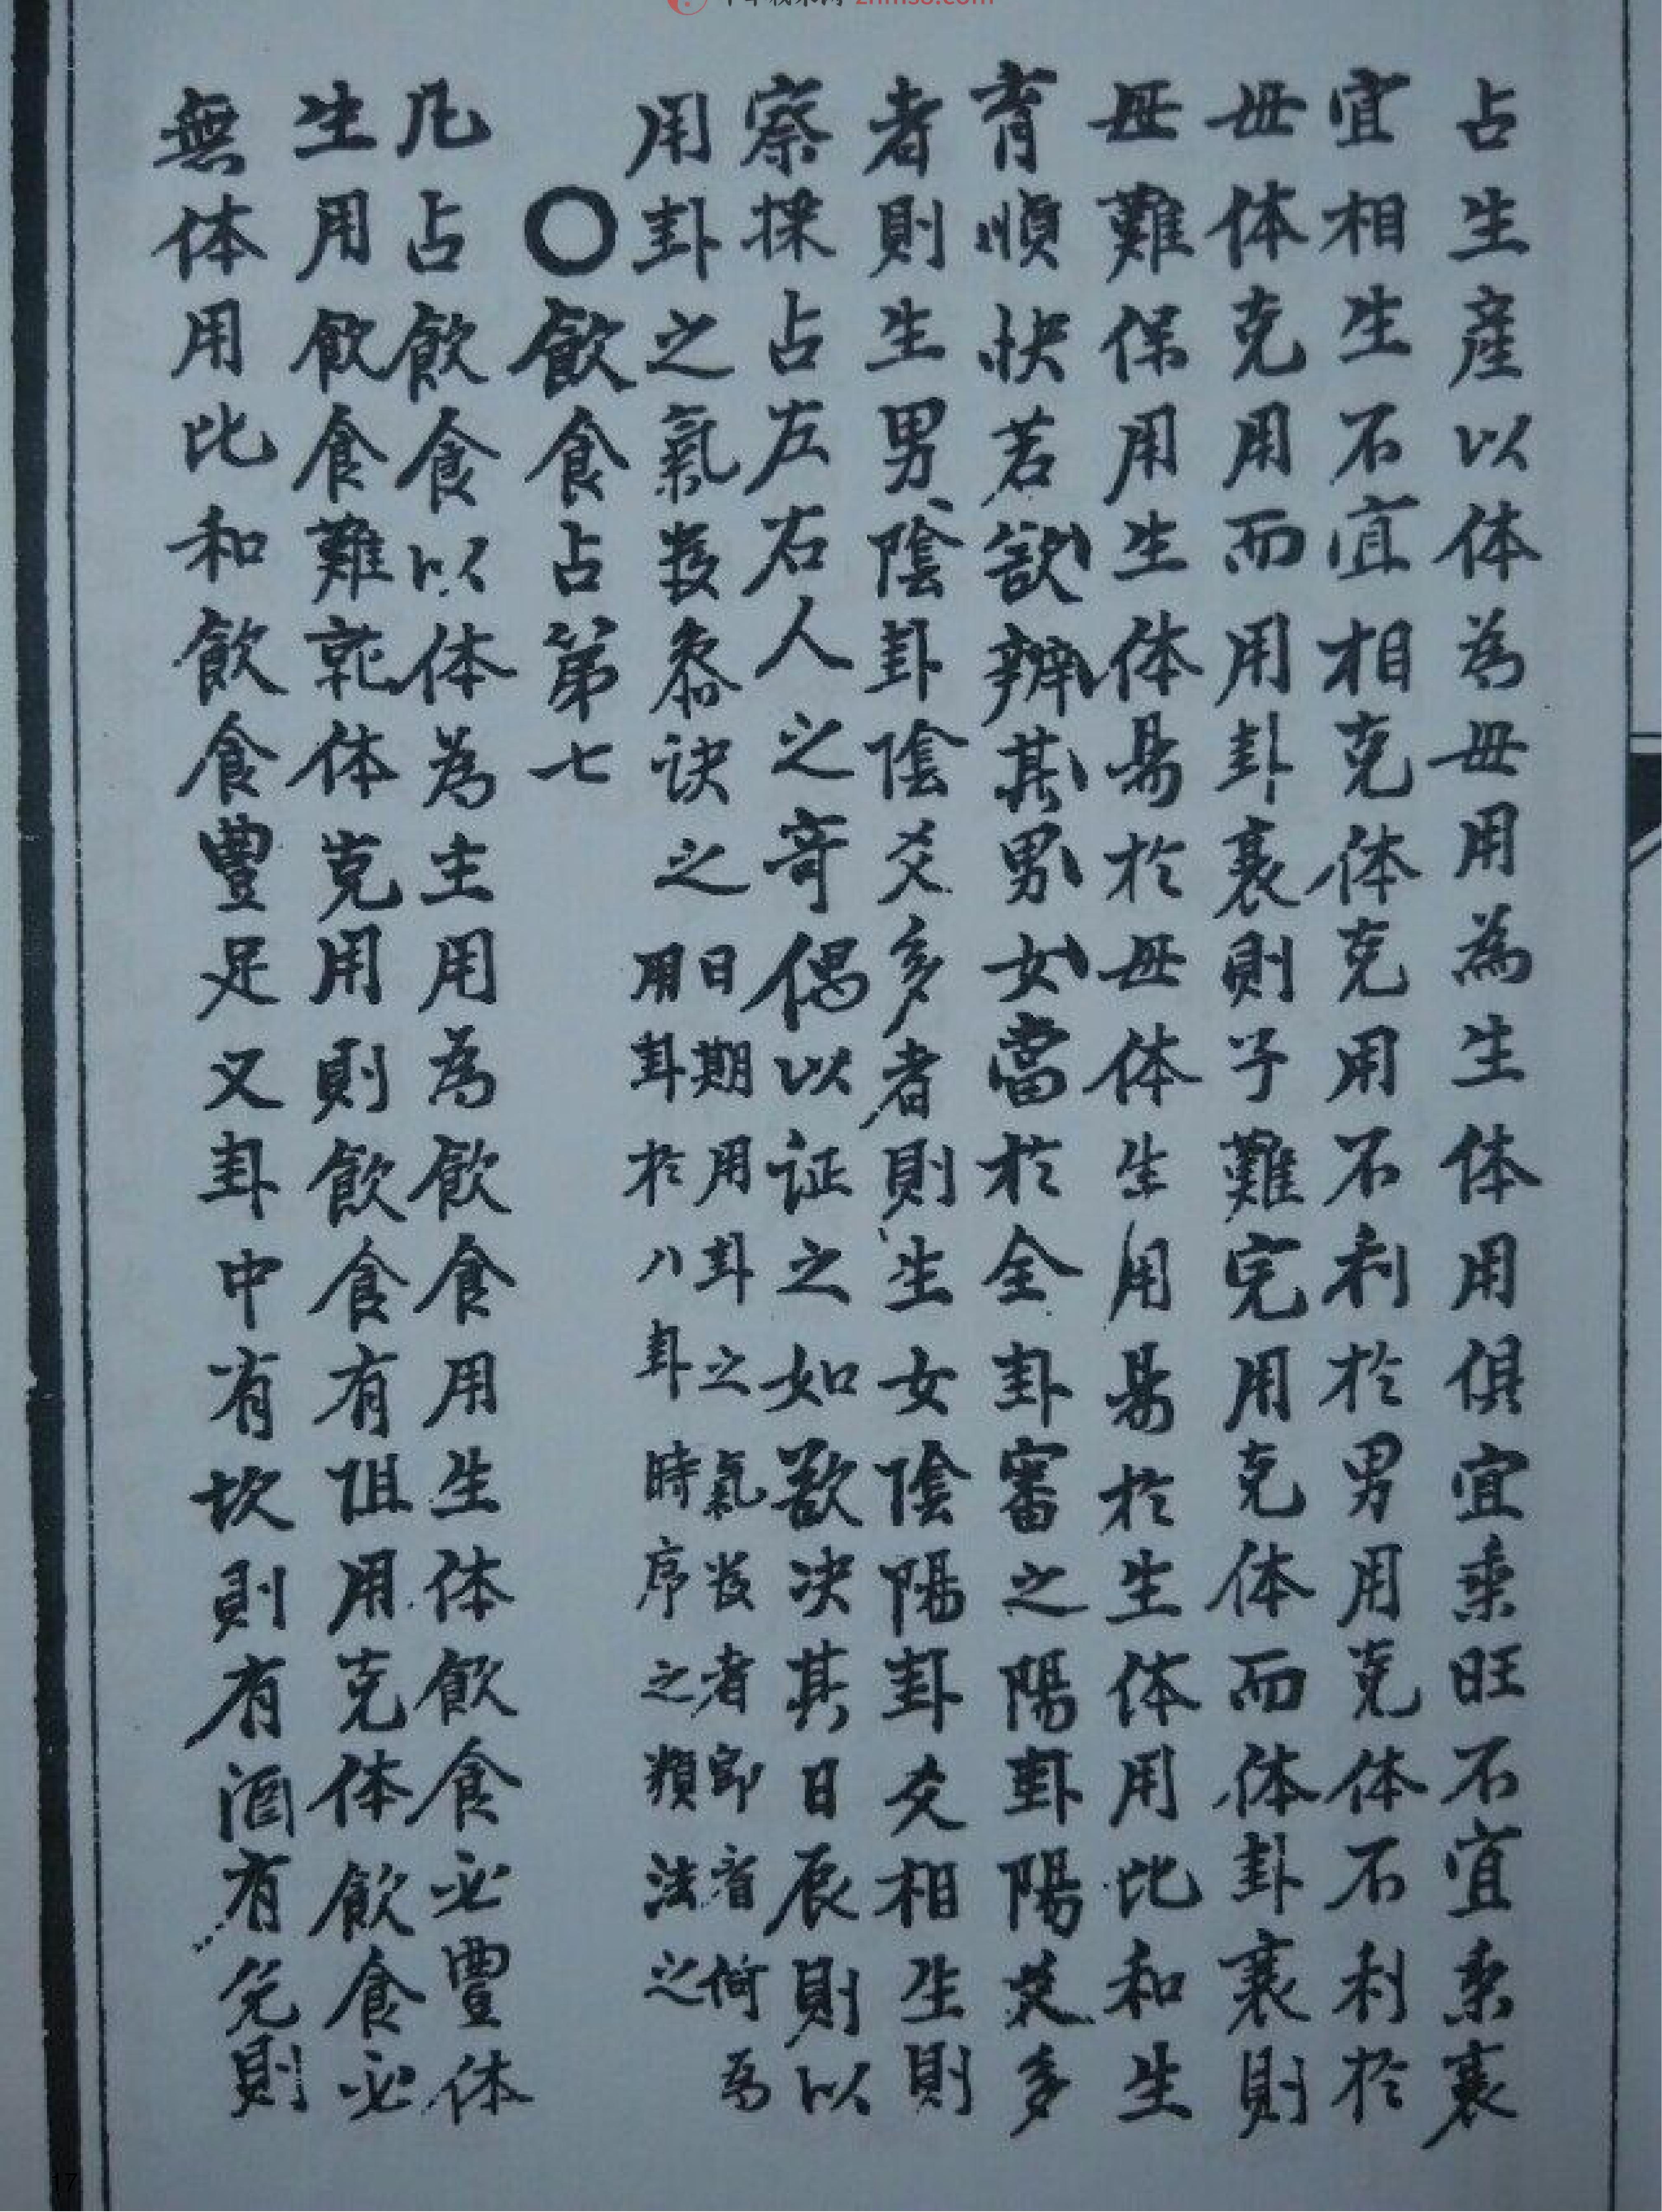 znms8.com
占生產以体為母用為生体用俱宜乘旺不宜乘衰
宜相生不宜相克体克用不利於男用克体不利於
母体克用而用卦衰則子難完用克体而体卦衰則
母難保用生体易於母体生用易於生体用比和生
育順快若欲辨其男女當於全卦審之陽卦陽爻多
者則生男陰卦陰爻多者則生女陰陽卦爻相生則
察採占左右人之奇偶以证之如欲决其日辰則以
用卦之氣参诀之
日期用卦之氣者即看何為
用卦於八卦時序之類法之
〇飲食占第七
凡占飲食以体為主用為飲食用生体飲食必豐体
生用飲食難乾体克用則飲食有阻用克体飲食必
無体用比和飲食豐足又卦中有坎則有酒有兌則
17